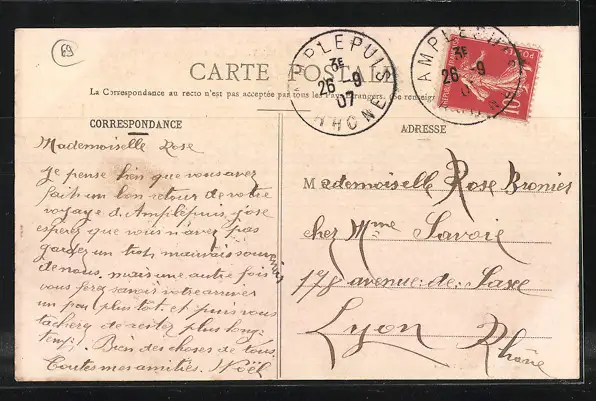 69
CARTE POSTALE
La Correspondance au recto n'est pas acceptée par tous les Pays étrangers. (Se renseigner
AMPLEPUIS
3E
26 -9
07
RHONE
AMPLEPUIS
3E
26 -9
POSTES
10c
CORRESPONDANCE
Mademoiselle Rose
Je pense bien que vous avez
fait un bon retour de votre
voyage d'Amplepuis, j'ose
espérer que vous n'avez pas
garder un trop mauvais souvenir
de nous. mais une autre fois
vous ferez savoir votre arrivée
un peu plus tôt. et puis vous
tacherez de rester plus long-
temps. Bien des choses de tous.
Toutes mes amitiés. Noël
ADRESSE
Mademoiselle Rose Bronier
chez Mme Savoie
178 avenue de Saxe
Lyon Rhône